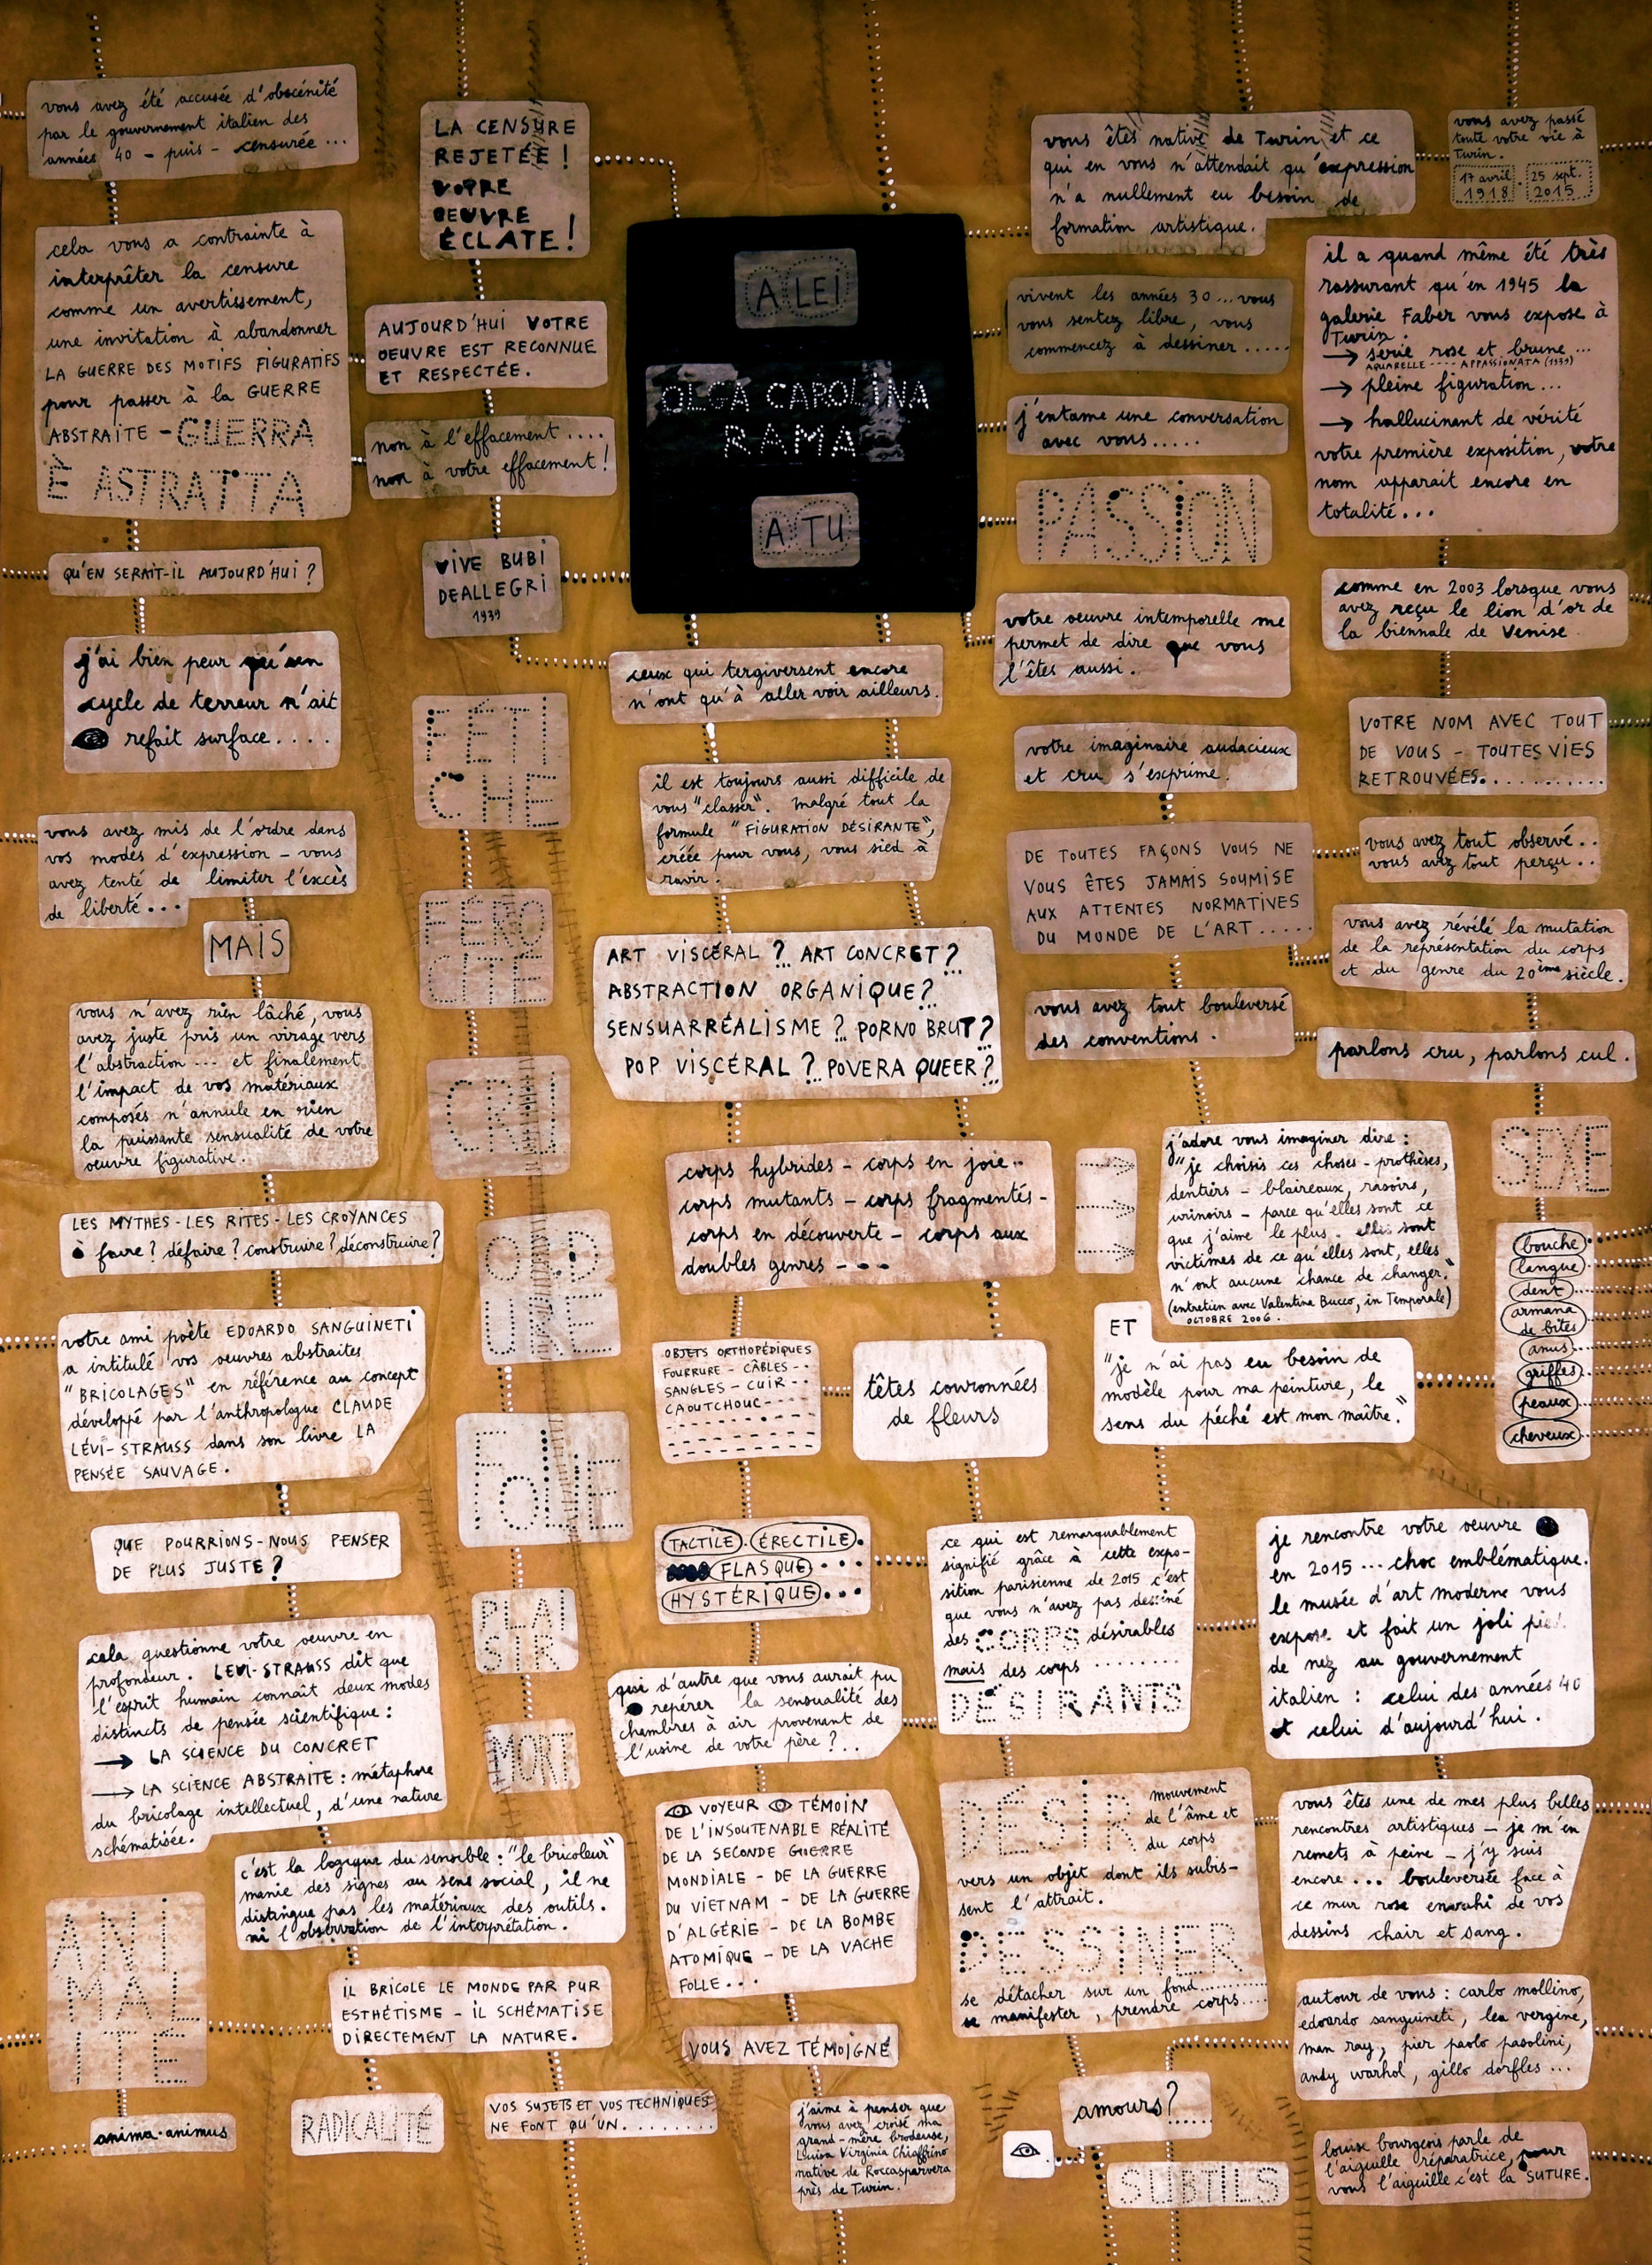 vous avez été accusée d'obscénité
par le gouvernement italien des
années 40 - puis - censurée ...
cela vous a contrainte à
interprêter la censure
comme un avertissement,
une invitation à abandonner
LA GUERRE DES MOTIFS FIGURATIFS
pour passer à la GUERRE
ABSTRAITE - GUERRA
È ASTRATTA
QU'EN SERAIT-IL AUJOURD'HUI ?
j'ai bien peur qu'un
cycle de terreur n'ait
refait surface....
vous avez mis de l'ordre dans
vos modes d'expression - vous
avez tenté de limiter l'excès
de liberté...
MAIS
vous n'avez rien lâché, vous
avez juste pris un virage vers
l'abstraction ... et finalement
l'impact de vos matériaux
composés n'annule en rien
la puissante sensualité de votre
oeuvre figurative.
LES MYTHES - LES RITES - LES CROYANCES
à faire ? défaire ? construire ? déconstruire ?
votre ami poète EDOARDO SANGUINETI
a intitulé vos oeuvres abstraites
"BRICOLAGES" en référence au concept
développé par l'anthropologue CLAUDE
LÉVI-STRAUSS dans son livre LA
PENSÉE SAUVAGE.
QUE POURRIONS-NOUS PENSER
DE PLUS JUSTE ?
cela questionne votre oeuvre en
profondeur. LEVI-STRAUSS dit que
l'esprit humain connaît deux modes
distincts de pensée scientifique :
→ LA SCIENCE DU CONCRET
→ LA SCIENCE ABSTRAITE : métaphore
du bricolage intellectuel, d'une nature
schématisée.
c'est la logique du sensible : "le bricoleur"
manie des signes au sens social, il ne
distingue pas les matériaux des outils.
ni l'observation de l'interprétation.
ANI
MAL
ITÉ
IL BRICOLE LE MONDE PAR PUR
ESTHÉTISME - IL SCHÉMATISE
DIRECTEMENT LA NATURE.
anima-animus
RADICALITÉ
VOS SUJETS ET VOS TECHNIQUES
NE FONT QU'UN........
LA CENSURE
REJETÉE !
VOTRE
OEUVRE
ÉCLATE !
AUJOURD'HUI VOTRE
OEUVRE EST RECONNUE
ET RESPECTÉE.
non à l'effacement ....
non à votre effacement !
VIVE BUBI
DEALLEGRI
1939
FÉTI
CHE
FÉRO
CITÉ
CRU
ORD
URE
FOLIE
PLAI
SIR
MORT
A LEI
OLGA CAROLINA
RAMA
A TU
ceux qui tergiversent encore
n'ont qu'à aller voir ailleurs.
il est toujours aussi difficile de
vous "classer". malgré tout la
formule "FIGURATION DÉSIRANTE",
créée pour vous, vous sied à
ravir.
ART VISCÉRAL ? ART CONCRET ?
ABSTRACTION ORGANIQUE ?
SENSUARRÉALISME ? PORNO BRUT ?
POP VISCÉRAL ? POVERA QUEER ?
corps hybrides - corps en joie --
corps mutants - corps fragmentés -
corps en découverte - corps aux
doubles genres - - -
OBJETS ORTHOPÉDIQUES
FOURRURE - CÂBLES --
SANGLES - CUIR --
CAOUTCHOUC----
têtes couronnées
de fleurs
TACTILE. ÉRECTILE.
FLASQUE...
HYSTÉRIQUE...
qui d'autre que vous aurait pu
repérer la sensualité des
chambres à air provenant de
l'usine de votre père ?..
VOYEUR TÉMOIN
DE L'INSOUTENABLE RÉALITÉ
DE LA SECONDE GUERRE
MONDIALE - DE LA GUERRE
DU VIETNAM - DE LA GUERRE
D'ALGÉRIE - DE LA BOMBE
ATOMIQUE - DE LA VACHE
FOLLE...
VOUS AVEZ TÉMOIGNÉ
j'aime à penser que
vous avez croisé ma
grand-mère brodeuse,
Luisa Virginia Chiaffrino
native de Roccasparvera
près de Turin.
vous êtes native de Turin et ce
qui en vous n'attendait qu'expression
n'a nullement eu besoin de
formation artistique.
vivent les années 30...vous
vous sentez libre, vous
commencez à dessiner.....
j'entame une conversation
avec vous.....
PASSION
votre oeuvre intemporelle me
permet de dire que vous
l'êtes aussi.
votre imaginaire audacieux
et cru s'exprime.
DE TOUTES FAÇONS VOUS NE
VOUS ÊTES JAMAIS SOUMISE
AUX ATTENTES NORMATIVES
DU MONDE DE L'ART.....
vous avez tout bouleversé
des conventions.
j'adore vous imaginer dire :
"je choisis ces choses - prothèses,
dentiers - blaireaux, rasoirs,
urinoirs - parce qu'elles sont ce
que j'aime le plus. elles sont
victimes de ce qu'elles sont, elles
n'ont aucune chance de changer."
(entretien avec Valentina Bucco, in Temporale)
OCTOBRE 2006.
ET
"je n'ai pas eu besoin de
modèle pour ma peinture, le
sens du péché est mon maître."
ce qui est remarquablement
signifié grâce à cette expo-
sition parisienne de 2015 c'est
que vous n'avez pas dessiné
des CORPS désirables
mais des corps ........
DÉSIRANTS
DÉSIR mouvement
de l'âme et
du corps
vers un objet dont ils subis-
sent l'attrait.
DESSINER
se détacher sur un fond..........
se manifester, prendre corps....
amours?.....
SUBTILS
vous avez passé
toute votre vie à
Turin.
17 avril 1918 . 25 sept. 2015
il a quand même été très
rassurant qu'en 1945 la
galerie Faber vous expose à
Turin.
→ série rose et brune ...
AQUARELLE ---- APPASSIONATA (1939)
→ pleine figuration...
→ hallucinant de vérité
votre première exposition, votre
nom apparait encore en
totalité...
comme en 2003 lorsque vous
avez reçu le lion d'or de
la biennale de Venise
VOTRE NOM AVEC TOUT
DE VOUS - TOUTES VIES
RETROUVÉES...........
vous avez tout observé..
vous avez tout perçu..
vous avez révélé la mutation
de la représentation du corps
et du genre du 20ème siècle.
parlons cru, parlons cul.
SEXE
bouche
langue
dent
armana
de bites
anus
griffes
peaux
cheveux
je rencontre votre oeuvre
en 2015 ... choc emblématique.
le musée d'art moderne vous
expose et fait un joli pied
de nez au gouvernement
italien : celui des années 40
et celui d'aujourd'hui.
vous êtes une de mes plus belles
rencontres artistiques - je m'en
remets à peine - j'y suis
encore ... bouleversée face à
ce mur rose envahi de vos
dessins chair et sang.
autour de vous : carlo mollino,
edoardo sanguineti, lea vergine,
man ray, pier paolo pasolini,
andy warhol, gillo dorfles ...
louise bourgeois parle de
l'aiguille réparatrice, pour
vous l'aiguille c'est la SUTURE.